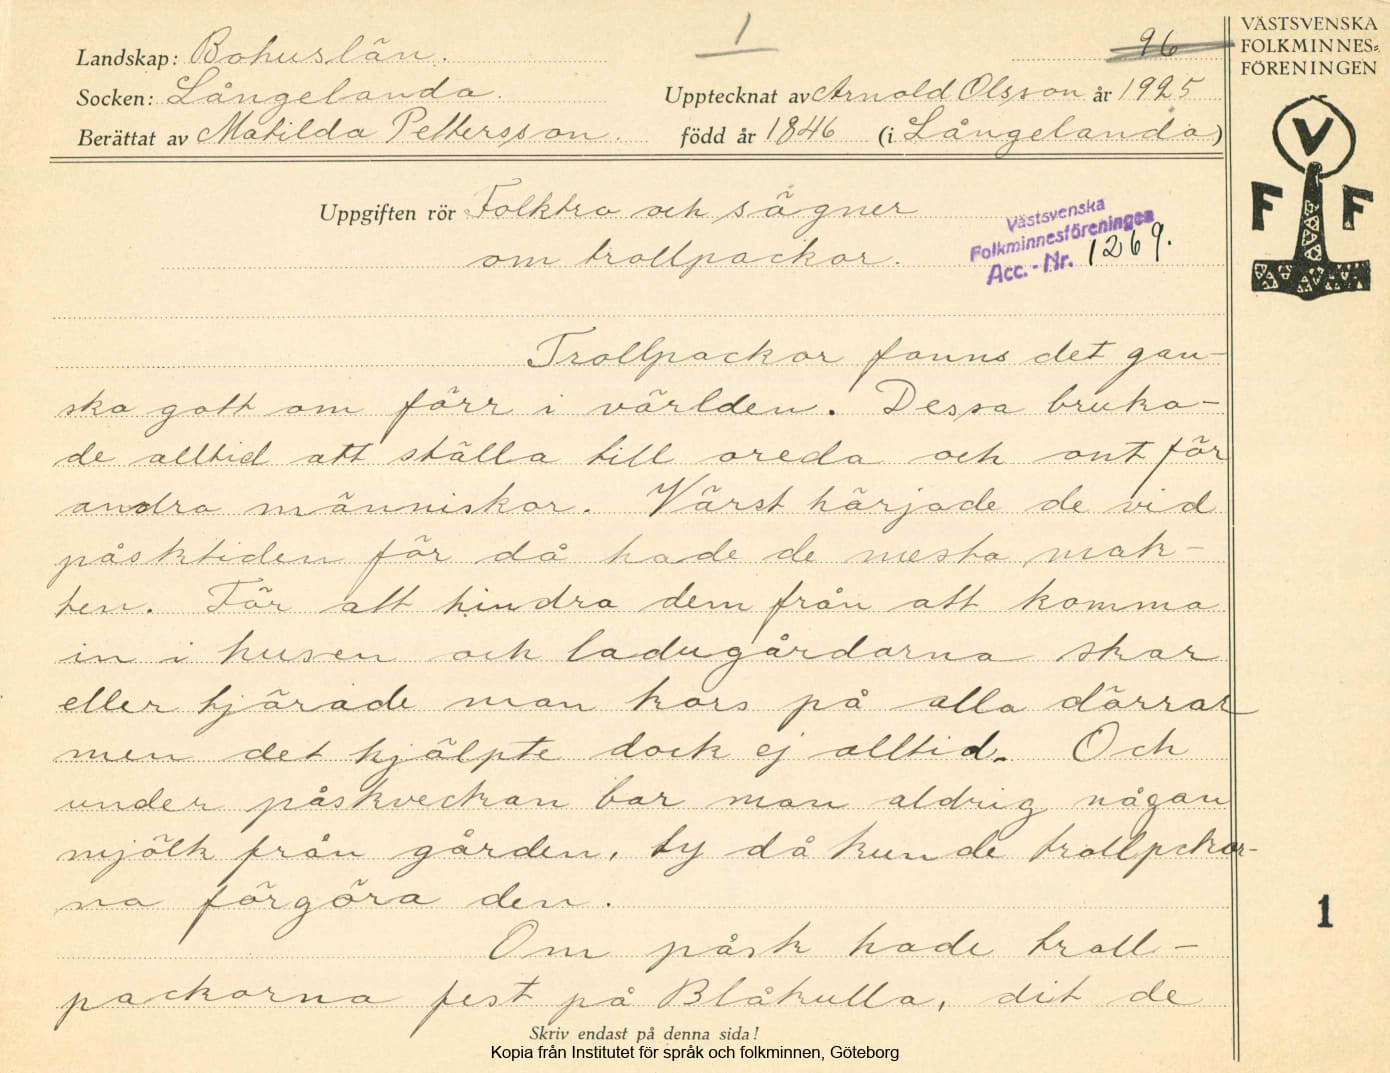 1
96
VÄSTSVENSKA
FOLKMINNES=
FÖRENINGEN
Landskap: Bohuslän.
Socken: Långelanda.
Upptecknat av Arnold Olsson år 1925
Berättat av Matilda Pettersson. född år 1846 (i Långelanda)
V
F F
Uppgiften rör Folktro och sägner
om trollpackor.
Västsvenska
Folkminnesföreningen
Acc.-Nr. 1269.
Trollpackor fanns det gan-
ska gott om förr i världen. Dessa bruka-
de alltid att ställa till oreda och ont för
andra människor. Värst härjade de vid
påsktiden för då hade de mesta mak-
ten. För att hindra dem från att komma
in i husen och ladugårdarna skar
eller tjärade man kors på alla dörrar
men det hjälpte dock ej alltid. Och
under påskveckan bar man aldrig någan
mjölk från gården, ty då kunde trollpckor-
na förgöra den.
1
Om påsk hade troll-
packorna fest på Blåkulla, dit de
Skriv endast på denna sida!
Kopia från Institutet för språk och folkminnen, Göteborg